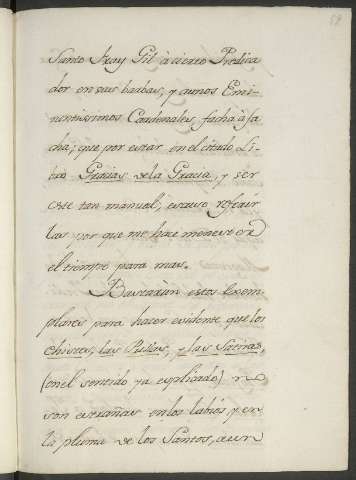 Santo Fray Gil à cierto Predica
dor en sus barbas, y à unos Emi-
nentissimos Cardenales, facha à fa
cha; que por estar en el citado Li-
bro Gracias de la Gracia, y ser
este tan manual, escuso referir
las por que me hace menester
el tiempo para mas.
Bastaràn estos Exem-
plares para hacer evidente que los
chistes, las Pullas, y las Satiras,
(en el sentido ya explicado) no
son estrañas en los labios, y en
la pluma de los Santos, aun